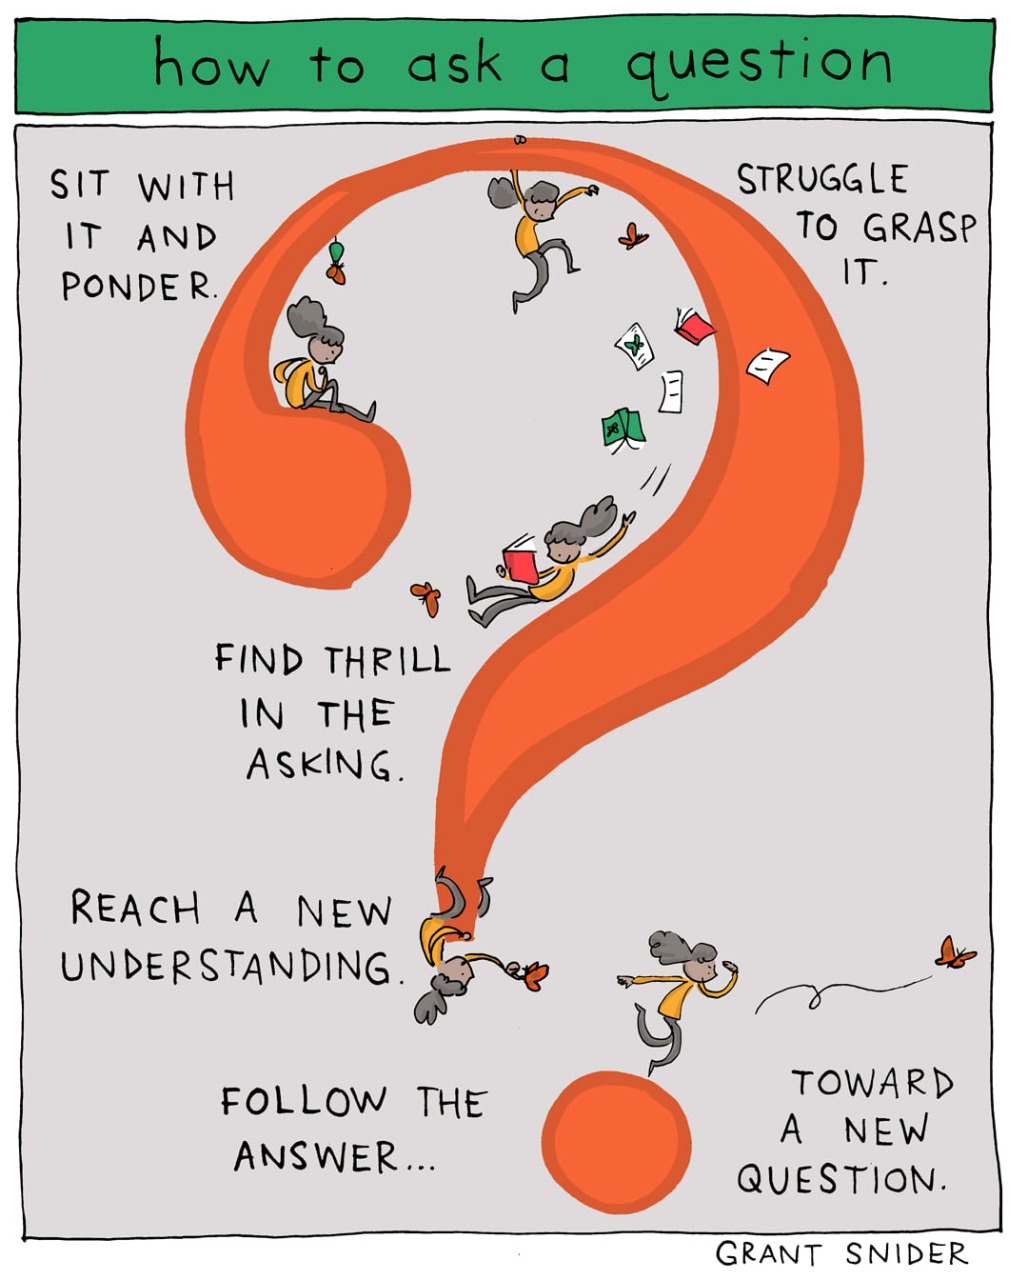 how to ask a question
SIT WITH
IT AND
PONDER.
STRUGGLE
TO GRASP
IT.
FIND THRILL
IN THE
ASKING.
REACH A NEW
UNDERSTANDING.
FOLLOW THE
ANSWER...
TOWARD
A NEW
QUESTION.
GRANT SNIDER